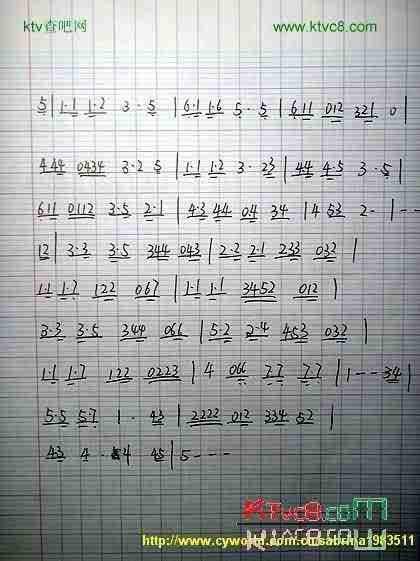 ktv查吧网 www.ktvc8.com
5 | 1·1 1·2 3·5 | 6·1 1·6 5·5 | 6 11 012 321 0 |
4 44 0434 3·2 5 | 1·1 1·2 3·23 | 44 4·5 3·5 |
611 0112 3·5 2·1 | 4·3 44 04 34 | 4 53 2- | --
12 | 3·3 3·5 344 043 | 2·2 2·1 233 032 |
1·1 1·7 122 067 | 1·1 1·1 3452 012 |
3·3 3·5 344 066 | 5·2 2·4 453 032 |
1·1 1·7 122 0223 | 4 066 77 77 | 1--34 |
5·5 5·7 1·43 | 2222 012 334 52 |
43 4·4 45 | 5---
Ktvc8.com
http://www.cyworld.com.cn/sabrina1983511